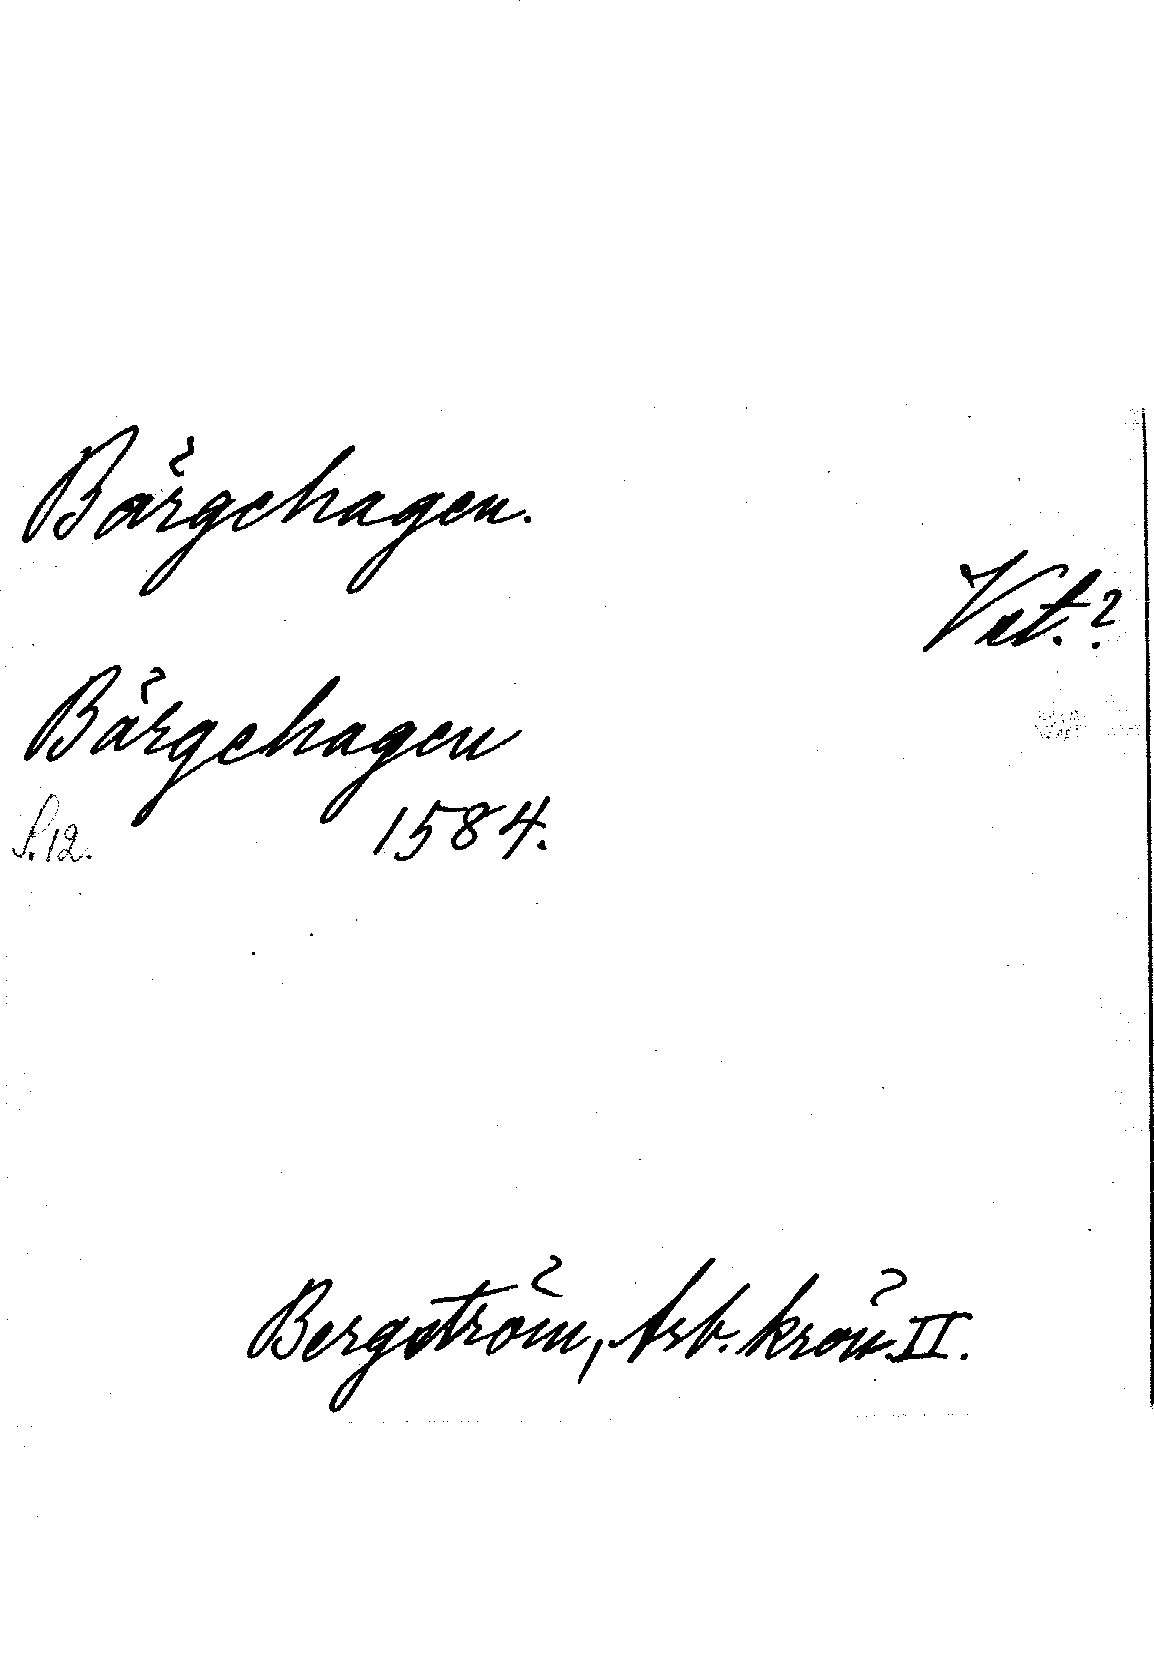 Bärgehagen.
Vet.?
Bärgehagen
S. 12. 1584.
Bergström, Arb. krön. II.